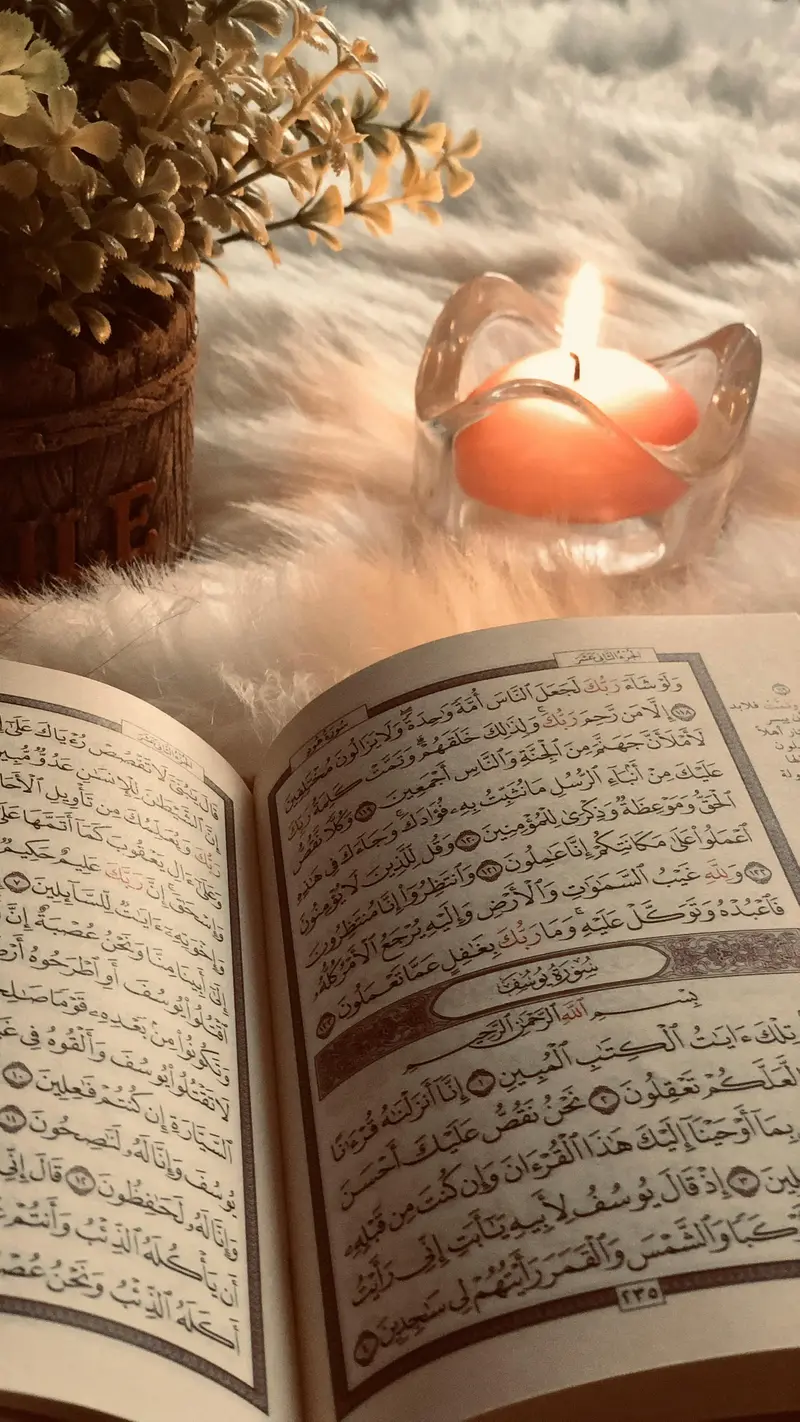 الجزء الثاني عشر
سورة هود
وَلَوْ شَآءَ رَبُّكَ لَجَعَلَ ٱلنَّاسَ أُمَّةً وَٰحِدَةً ۖ وَلَا يَزَالُونَ مُخْتَلِفِينَ
١١٨ إِلَّا مَن رَّحِمَ رَبُّكَ ۚ وَلِذَٰلِكَ خَلَقَهُمْ ۗ وَتَمَّتْ كَلِمَةُ رَبِّكَ
لَأَمْلَأَنَّ جَهَنَّمَ مِنَ ٱلْجِنَّةِ وَٱلنَّاسِ أَجْمَعِينَ ١١٩ وَكُلًّا نَّقُصُّ
عَلَيْكَ مِنْ أَنۢبَآءِ ٱلرُّسُلِ مَا نُثَبِّتُ بِهِۦ فُؤَادَكَ ۚ وَجَآءَكَ فِى هَٰذِهِ
ٱلْحَقُّ وَمَوْعِظَةٌ وَذِكْرَىٰ لِلْمُؤْمِنِينَ ١٢٠ وَقُل لِّلَّذِينَ لَا يُؤْمِنُونَ
ٱعْمَلُوا۟ عَلَىٰ مَكَانَتِكُمْ إِنَّا عَٰمِلُونَ ١٢١ وَٱنتَظِرُوٓا۟ إِنَّا مُنتَظِرُونَ
١٢٢ وَلِلَّهِ غَيْبُ ٱلسَّمَٰوَٰتِ وَٱلْأَرْضِ وَإِلَيْهِ يُرْجَعُ ٱلْأَمْرُ كُلُّهُۥ
فَٱعْبُدْهُ وَتَوَكَّلْ عَلَيْهِ ۚ وَمَا رَبُّكَ بِغَٰفِلٍ عَمَّا تَعْمَلُونَ ١٢٣
سُورَةُ يُوسُفَ
بِسْمِ ٱللَّهِ ٱلرَّحْمَٰنِ ٱلرَّحِيمِ
تِلْكَ ءَايَٰتُ ٱلْكِتَٰبِ ٱلْمُبِينِ ١ إِنَّآ أَنزَلْنَٰهُ قُرْءَٰنًا
لَّعَلَّكُمْ تَعْقِلُونَ ٢ نَحْنُ نَقُصُّ عَلَيْكَ أَحْسَنَ
بِمَآ أَوْحَيْنَآ إِلَيْكَ هَٰذَا ٱلْقُرْءَانَ وَإِن كُنتَ مِن قَبْلِهِۦ
٣ إِذْ قَالَ يُوسُفُ لِأَبِيهِ يَٰٓأَبَتِ إِنِّى رَأَيْتُ
وَٱلشَّمْسَ وَٱلْقَمَرَ رَأَيْتُهُمْ لِى سَٰجِدِينَ ٤
٢٣٥
قَالَ يَٰبُنَىَّ لَا تَقْصُصْ رُءْيَاكَ عَلَىٰٓ
إِنَّ ٱلشَّيْطَٰنَ لِلْإِنسَٰنِ عَدُوٌّ مُّبِينٌ
رَبُّكَ وَيُعَلِّمُكَ مِن تَأْوِيلِ
وَعَلَىٰٓ ءَالِ يَعْقُوبَ كَمَآ أَتَمَّهَا عَلَىٰٓ
وَإِسْحَٰقَ ۚ إِنَّ رَبَّكَ عَلِيمٌ حَكِيمٌ
وَإِخْوَتِهِۦٓ ءَايَٰتٌ لِّلسَّآئِلِينَ ٧
إِلَىٰٓ أَبِينَا مِنَّا وَنَحْنُ عُصْبَةٌ إِنَّ
ٱقْتُلُوا۟ يُوسُفَ أَوِ ٱطْرَحُوهُ
وَتَكُونُوا۟ مِنۢ بَعْدِهِۦ قَوْمًا
لَا تَقْتُلُوا۟ يُوسُفَ وَأَلْقُوهُ فِى
ٱلسَّيَّارَةِ إِن كُنتُمْ فَٰعِلِينَ ١٠
يُوسُفَ وَإِنَّا لَهُۥ لَنَٰصِحُونَ ١١
وَإِنَّا لَهُۥ لَحَٰفِظُونَ ١٢ قَالَ إِنِّى
أَن يَأْكُلَهُ ٱلذِّئْبُ وَأَنتُمْ
أَكَلَهُ ٱلذِّئْبُ وَنَحْنُ